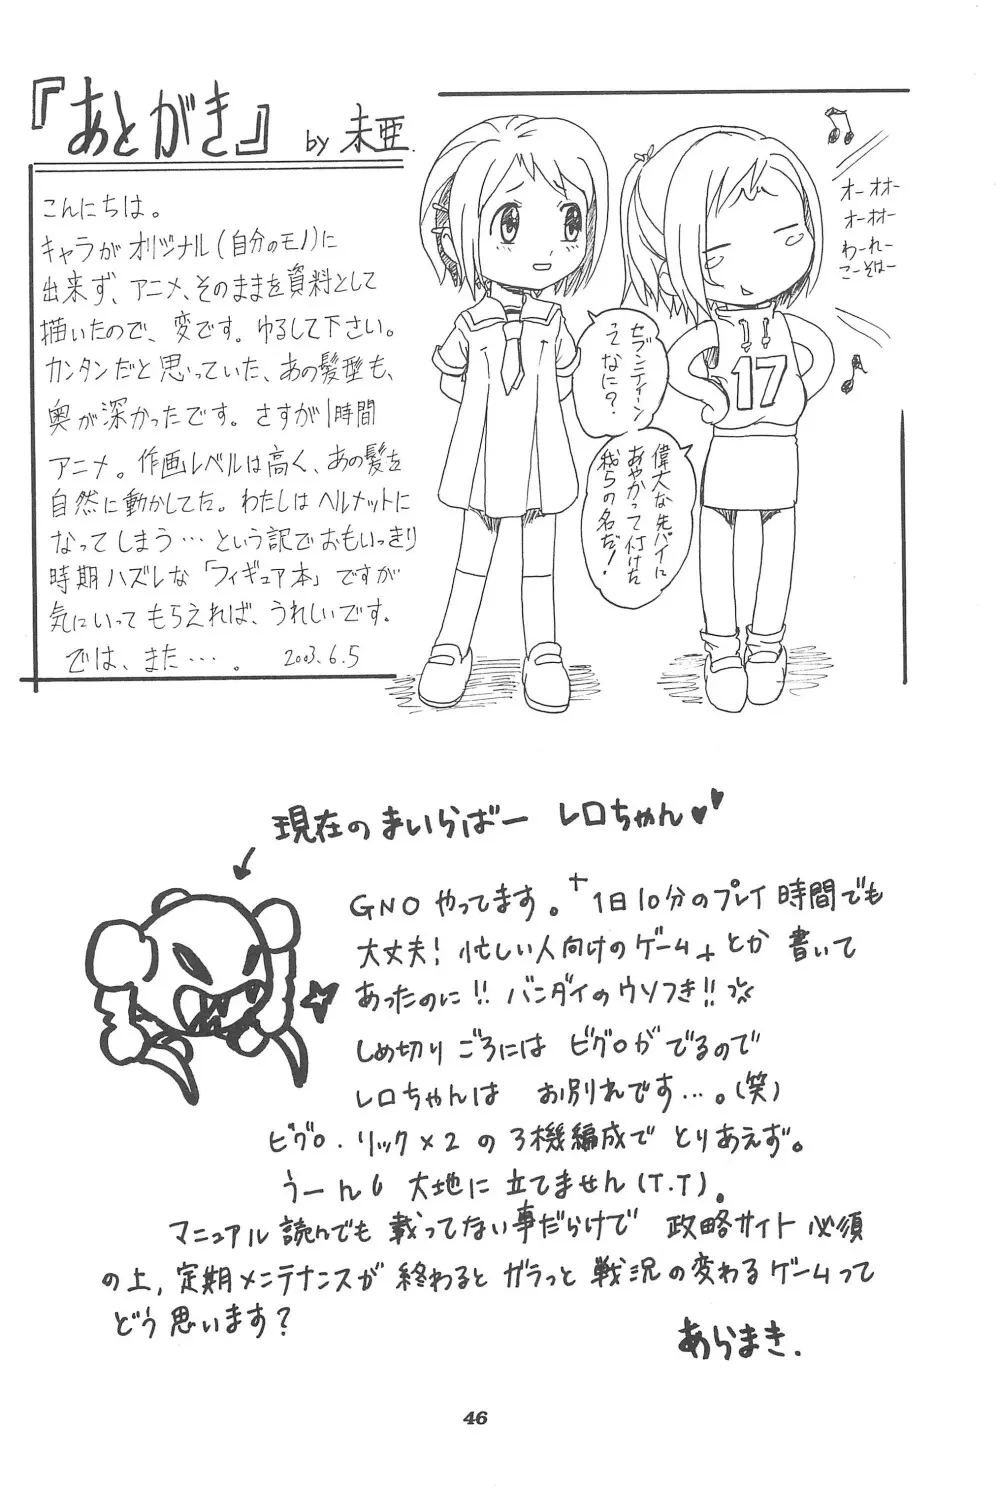 『あとがき』 by 未亜.
こんにちは。
キャラがオリジナル(自分のモノ)に
出来ず、アニメ、そのままを資料として
描いたので、変です。ゆるして下さい。
カンタンだと思っていた、あの髪型も、
奥が深かったです。さすが1時間
アニメ。作画レベルは高く、あの髪を
自然に動かしてた。わたしはヘルメットに
なってしまう…という訳でおもいっきり
時期ハズレな「フィギュア本」ですが
気にいってもらえれば、うれしいです。
では、また…。 2003.6.5
オーオオー
オーオオー
わーれー
こーそはー
セブンティーン
てなに?
偉大な先パイに
あやかって付けた
我らの名だ!
17
現在のまいらばー レロちゃん♥♥
GNOやってます。+1日10分のプレイ時間でも
大丈夫!忙しい人向けのゲーム+とか 書いて
あったのに!!バンダイのウソつき!!
しめ切りごろには ビグロがでるので
レロちゃんは お別れです…。(笑)
ビグロ.リック×2の3機編成で とりあえず。
うーん 大地に立てません(T.T)。
マニュアル読んでも載ってない事だらけで 政略サイト必須
の上,定期メンテナンスが 終わると ガラっと 戦況の変わるゲームって
どう思います?
あらまき.
46